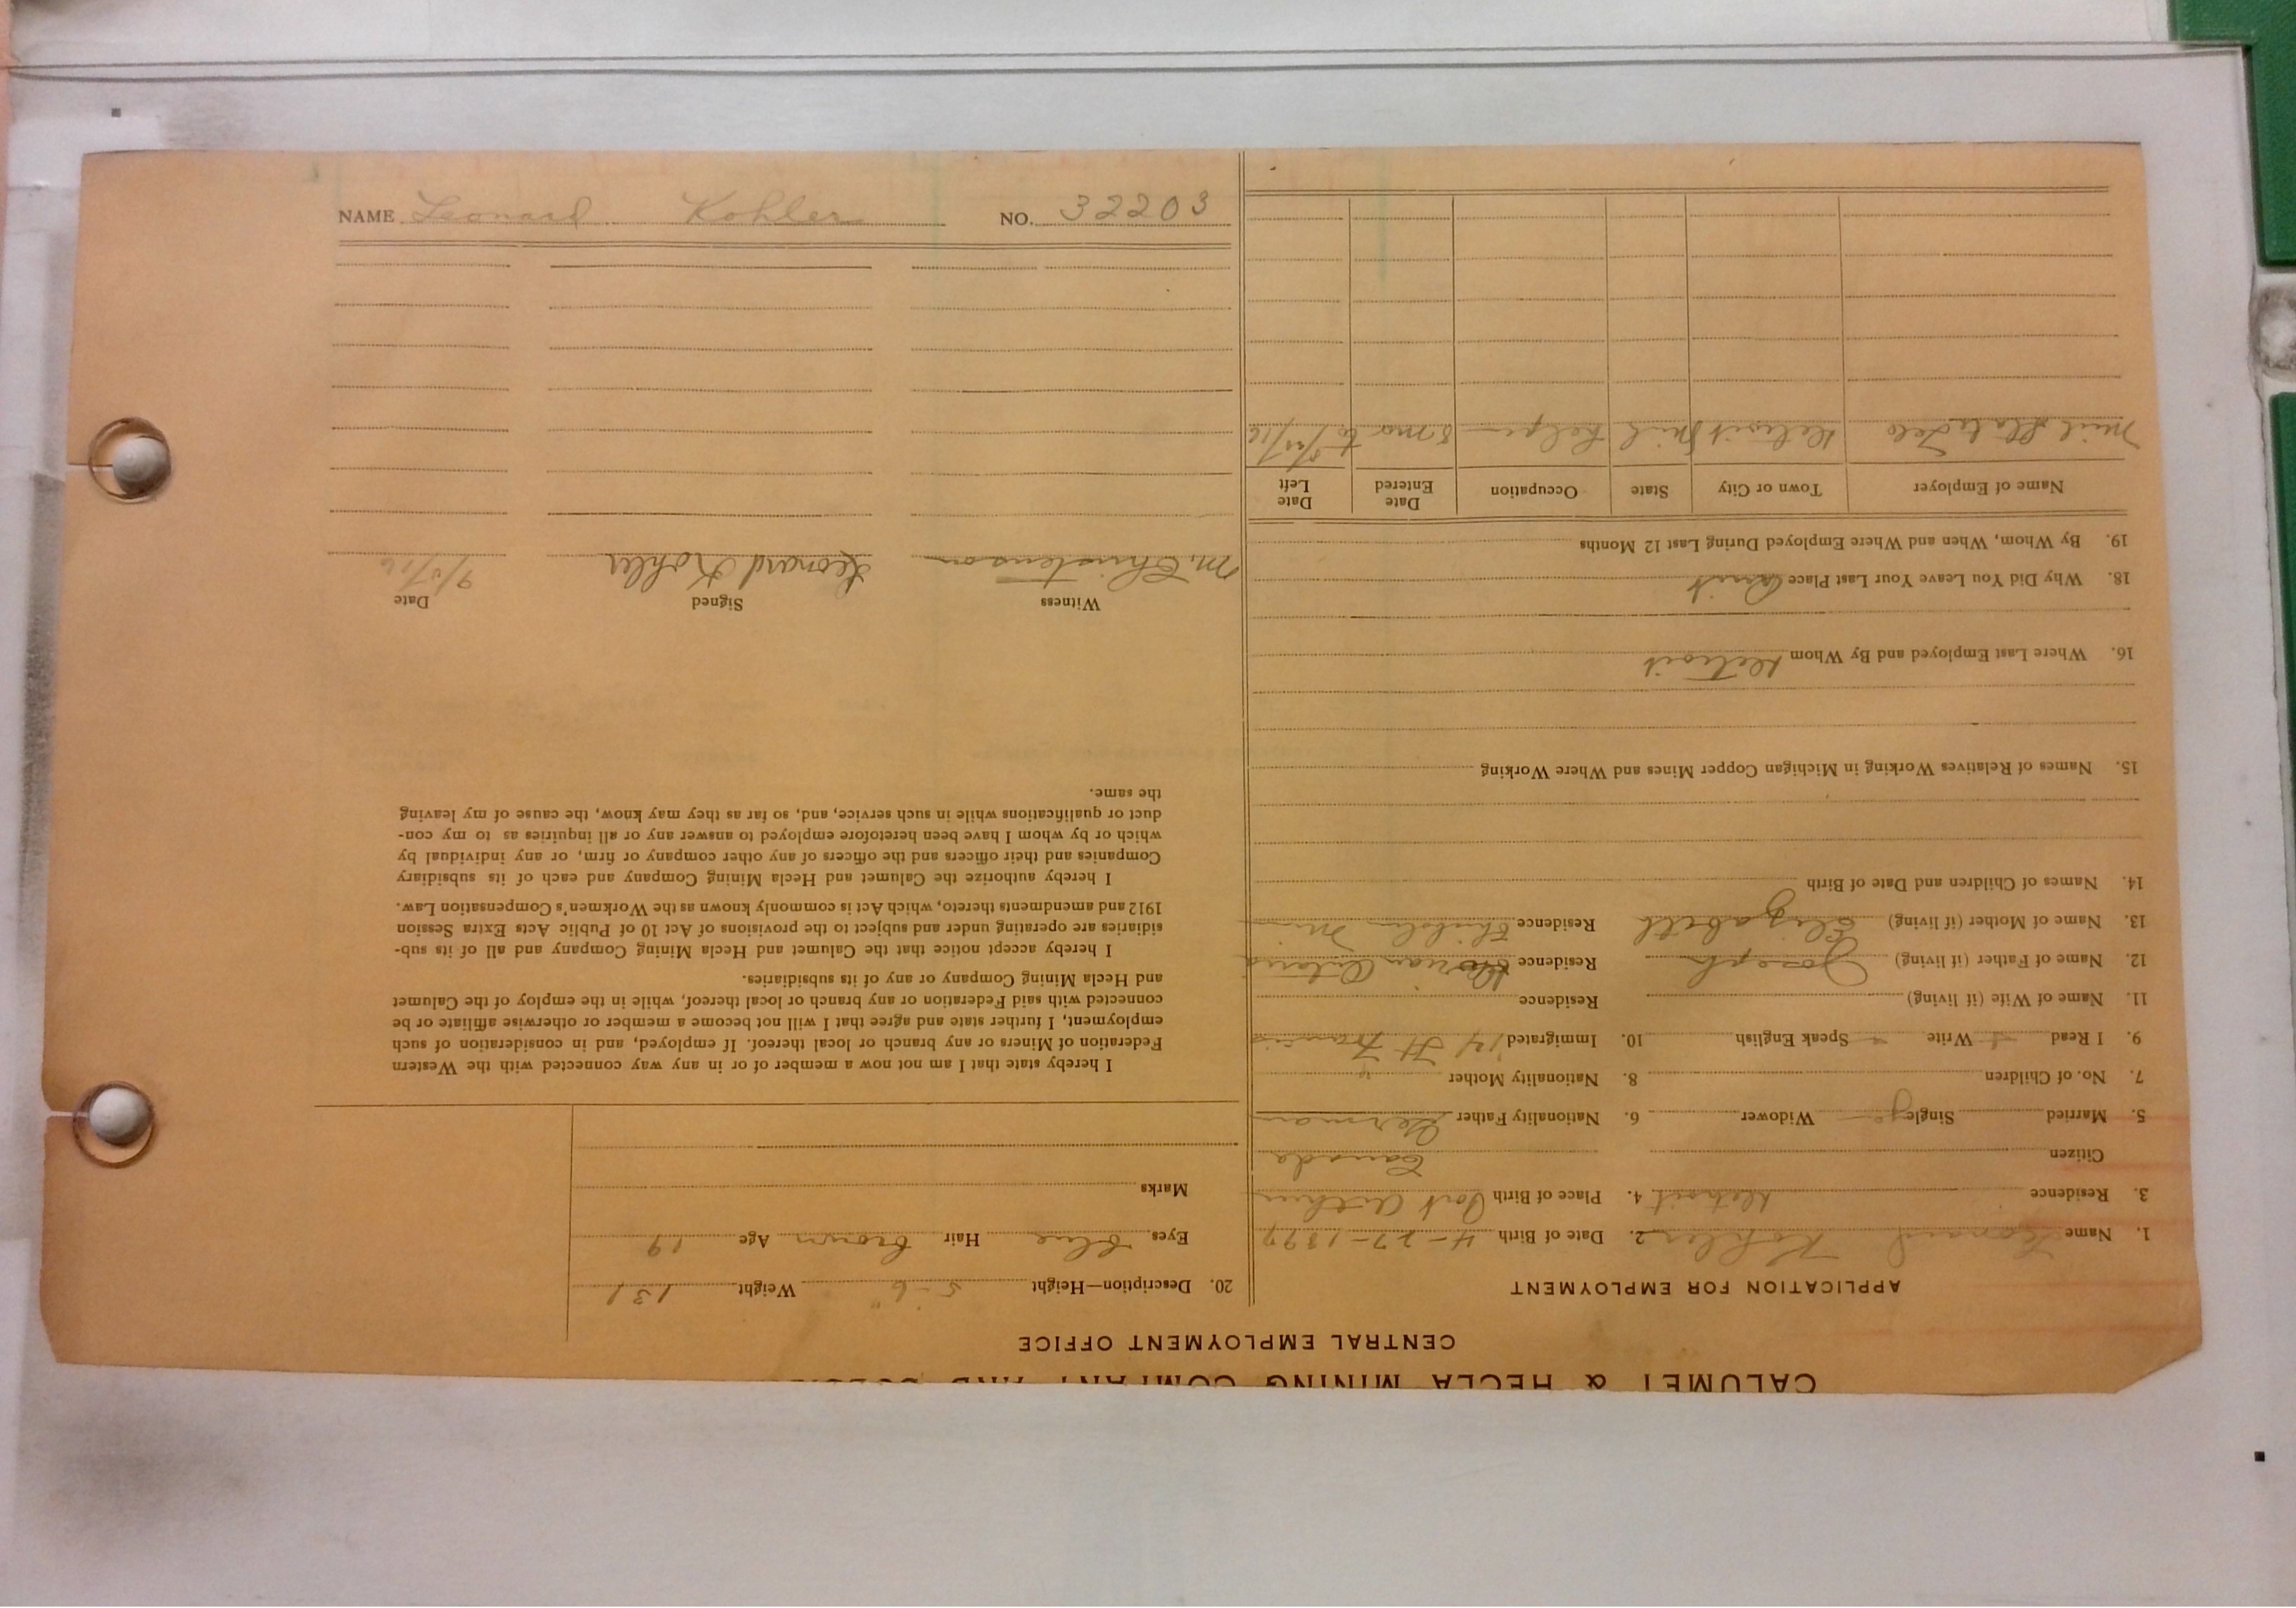 NAME Leonard Kohler NO. 32203
CALUMET & HECLA MINING COMPANY AND
CENTRAL EMPLOYMENT OFFICE
APPLICATION FOR EMPLOYMENT
1. Name Leonard Kohler 2. Date of Birth 4-27-1897
3. Residence Detroit 4. Place of Birth Port Arthur
Citizen Canada
5. Married Single Widower 6. Nationality Father German
7. No. of Children 8. Nationality Mother "
9. I Read Write Speak English 10. Immigrated '14 Ft Francis
11. Name of Wife (if living) Residence
12. Name of Father (if living) Joseph Residence
13. Name of Mother (if living) Elizabeth Residence
14. Names of Children and Date of Birth
15. Names of Relatives Working in Michigan Copper Mines and Where Working
16. Where Last Employed and By Whom Detroit
18. Why Did You Leave Your Last Place Quit
19. By Whom, When and Where Employed During Last 12 Months
Name of Employer Town or City State Occupation Date Entered Date Left
Mich State Tele Detroit Mich Helper 8 mo to
20. Description—Height 5-6" Weight 131
Eyes blue Hair brown Age 19
Marks
I hereby state that I am not now a member of or in any way connected with the Western
Federation of Miners or any branch or local thereof. If employed, and in consideration of such
employment, I further state and agree that I will not become a member or otherwise affiliate or be
connected with said Federation or any branch or local thereof, while in the employ of the Calumet
and Hecla Mining Company or any of its subsidiaries.
I hereby accept notice that the Calumet and Hecla Mining Company and all of its sub-
sidiaries are operating under and subject to the provisions of Act 10 of Public Acts Extra Session
1912 and amendments thereto, which Act is commonly known as the Workmen's Compensation Law.
I hereby authorize the Calumet and Hecla Mining Company and each of its subsidiary
Companies and their officers and the officers of any other company or firm, or any individual by
which or by whom I have been heretofore employed to answer any or all inquiries as to my con-
duct or qualifications while in such service, and, so far as they may know, the cause of my leaving
the same.
Witness Signed Date
M. Christenson Leonard Kohler 9/5/16